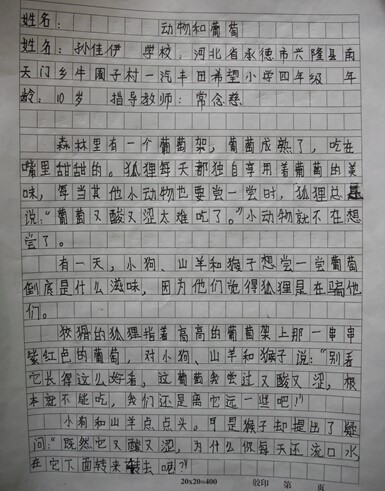 姓名：动物和葡萄
姓名：孙佳伊 学校：河北省承德市兴隆县南
天门乡牛圈子村一汽丰田希望小学四年级 年
龄：10岁 指导教师：常念慈
森林里有一个葡萄架，葡萄成熟了，吃在
嘴里甜甜的。狐狸每天都独自享用着葡萄的美
味，每当其他小动物也要尝一尝时，狐狸总是
说：“葡萄又酸又涩太难吃了。”小动物就不在想
尝了。
有一天，小狗、山羊和猴子想尝一尝葡萄
倒底是什么滋味，因为他们觉得狐狸是在骗他
们。
狡猾的狐狸指着高高的葡萄架上那一串串
紫红色的葡萄，对小狗、山羊和猴子说：“别看
它长得这么好看，这葡萄我尝过又酸又涩，根
本就不能吃，我们还是离它远一些吧！”
小狗和山羊点点头。可是猴子却提出了疑
问：“既然它又酸又涩，为什么你每天还流口水
在它下面转来转去呢？”
20×20=400 胶印 第 页